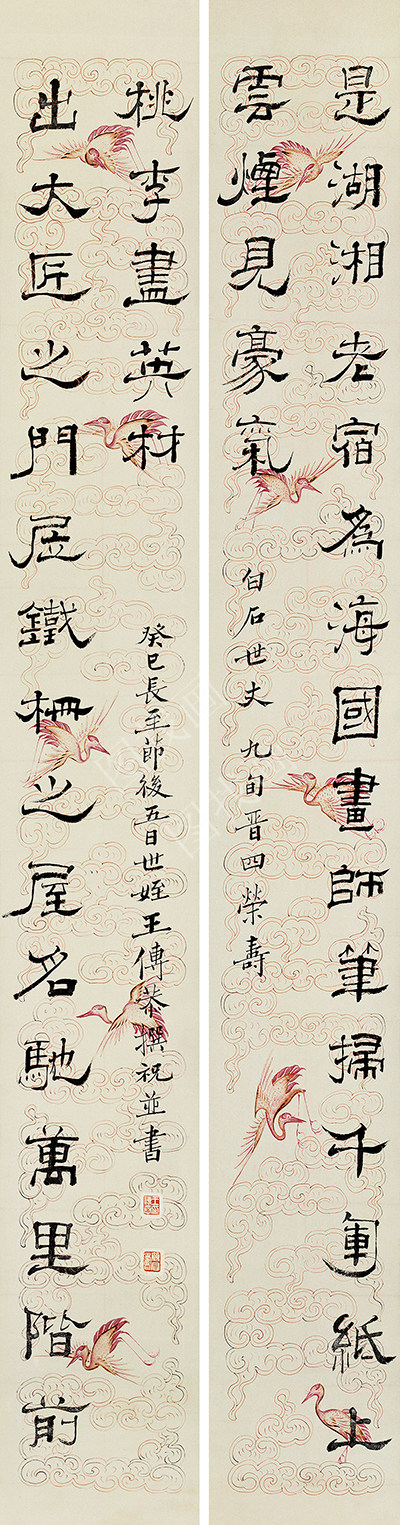 是湖湘老宿為海國畫師筆掃千軍紙上
雲煙見豪氣
白石世丈 九旬晋四榮壽
出大匠之門居鐵柵之屋名馳萬里階前
桃李盡英材
癸巳長至節後五日世姪王傳撰祝並書